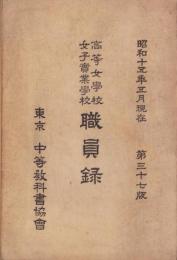 昭和十五年五月現在　第三十七版
高等女學校
女子實業學校
職員錄
東京　中等教科書協會